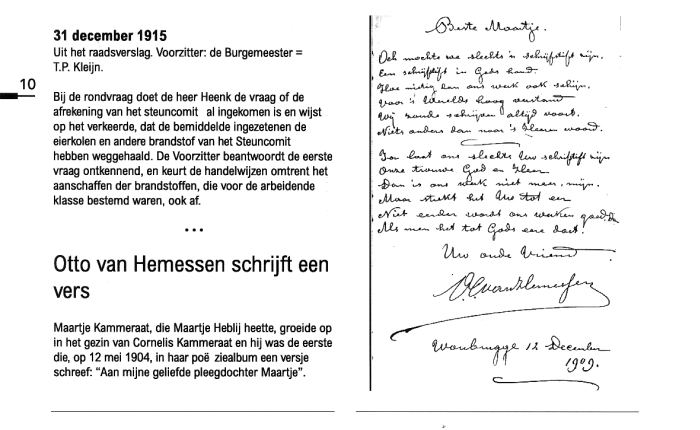 31 december 1915
Uit het raadsverslag. Voorzitter: de Burgemeester =
T.P. Kleijn.
10
Bij de rondvraag doet de heer Heenk de vraag of de
afrekening van het steuncomit al ingekomen is en wijst
op het verkeerde, dat de bemiddelde ingezetenen de
eierkolen en andere brandstof van het Steuncomit
hebben weggehaald. De Voorzitter beantwoordt de eerste
vraag ontkennend, en keurt de handelwijzen omtrent het
aanschaffen der brandstoffen, die voor de arbeidende
klasse bestemd waren, ook af.
• • •
Otto van Hemessen schrijft een
vers
Maartje Kammeraat, die Maartje Heblij heette, groeide op
in het gezin van Cornelis Kammeraat en hij was de eerste
die, op 12 mei 1904, in haar poë ziealbum een versje
schreef: “Aan mijne geliefde pleegdochter Maartje”.
Beste Maartje.
Och mochte we slechts 'n schrijfstift zijn.
Een schrijfstift in Gods hand.
Hoe nietig dan ons werk ook schijn.
Voor 's Werelds hoog verstand
Wij zoude schrijven altijd voort.
Niets anders dan naar 's Heeren woord.
Ja laat ons slechts Uw schrijfstift zijn
Onze trouwe God en Heer
Dan is ons werk niet meer mijn.
Maar strekt het Uw tot eer
Niet eerder wordt ons werken goed.
Als men het tot Gods eere doet.
Uw oude Vriend
O.C. van Hemessen
Woubrugge 12 December
1909.